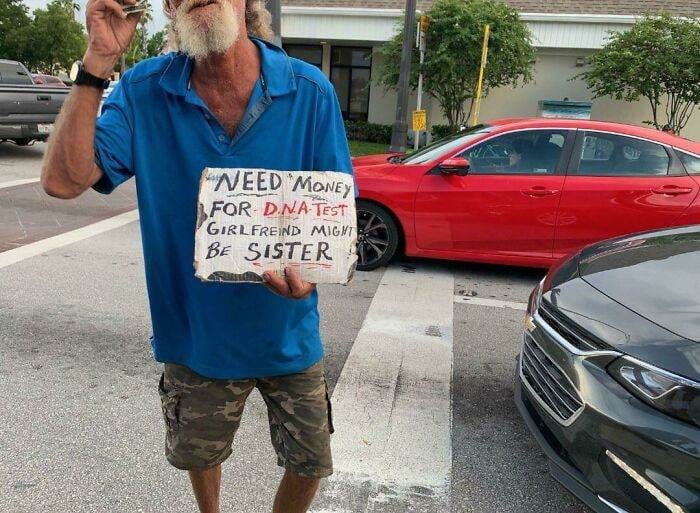 NEED MONEY
FOR D.N.A-TEST
GIRLFREIND MIGHT
BE SISTER